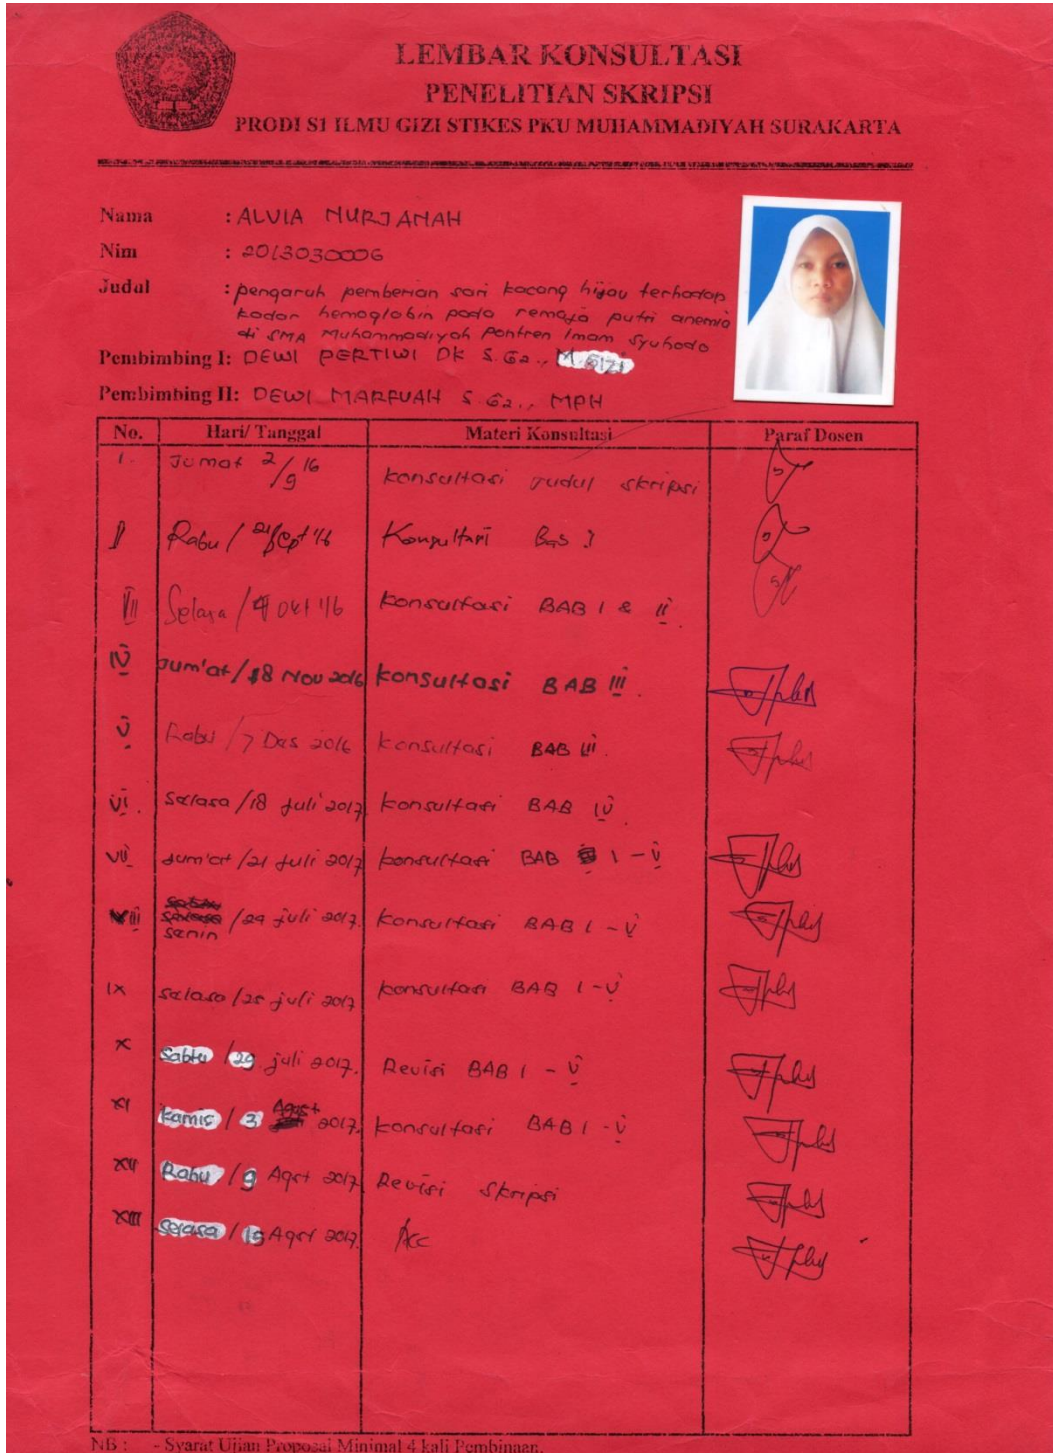 LEMBAR KONSULTASI
PENELITIAN SKRIPSI
PRODI S1 ILMU GIZI STIKES PKU MUHAMMADIYAH SURAKARTA
Nama : ALVIA NURJANAH
Nim : 2013030006
Judul : pengaruh pemberian sari kacang hijau terhadap
kadar hemoglobin pada remaja putri anemia
di SMA Muhammadiyah Pontren Imam Syuhodo
Pembimbing I: DEWI PERTIWI DK S.Gz., M.GIZI
Pembimbing II: DEWI MARFUAH S.Gz., MPH
No. Hari/ Tanggal Materi Konsultasi Paraf Dosen
1. Jumat 2/9 16 konsultasi Judul skripsi
II Rabu / 21 Sept '16 Konsultasi Bab I
III Selasa / 4 Okt '16 konsultasi BAB I & II
IV Jum'at / 18 Nov 2016 konsultasi BAB III
V Rabu / 7 Des 2016 konsultasi BAB III
VI. Selasa / 18 Juli 2017 konsultasi BAB IV
VII Jum'at / 21 Juli 2017 konsultasi BAB I - V
VIII senin / 24 juli 2017. konsultasi BAB I - V
IX selasa / 25 juli 2017 konsultasi BAB I - V
X Sabtu / 29 juli 2017. Revisi BAB I - V
XI kamis / 3 Agust 2017. konsultasi BAB I - V
XII Rabu / 9 Agst 2017 Revisi Skripsi
XIII Selasa / 15 Agst 2017. Acc
NB : - Syarat Ujian Proposal Minimal 4 kali Pembinaan.